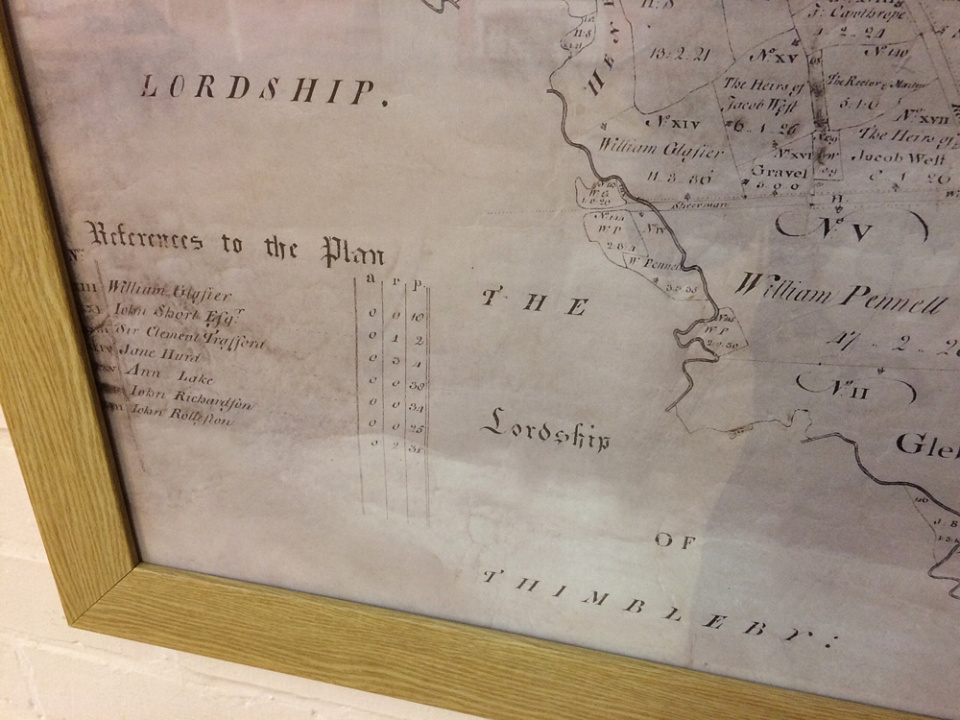 LORDSHIP.
References to the Plan
a r p.
William Glasier 0 0 10
Iohn Short Esqr. 0 1 2
Sir Clement Trafford 0 3 4
Jane Hurd 0 0 30
Ann Lake 0 0 34
Iohn Richardson 0 0 25
Iohn Rolleston 0 2 31
THE
Lordship
OF
THIMBLEBY:
J. Cawthrope
4 - 2 - 24
13: 2. 21
No. XV
The Heirs of
Jacob West
6 - 1 - 26
No. XIV
William Glasier
11 3 - 36
Gravel
The Rector
5 - 1 - 0
No. XVII
The Heirs of
Jacob West
No. V
William Pennell
47 - 2 -
No. II
Gle
W G
1 - 0 - 20
W P
No. IV
W Pennell
W P